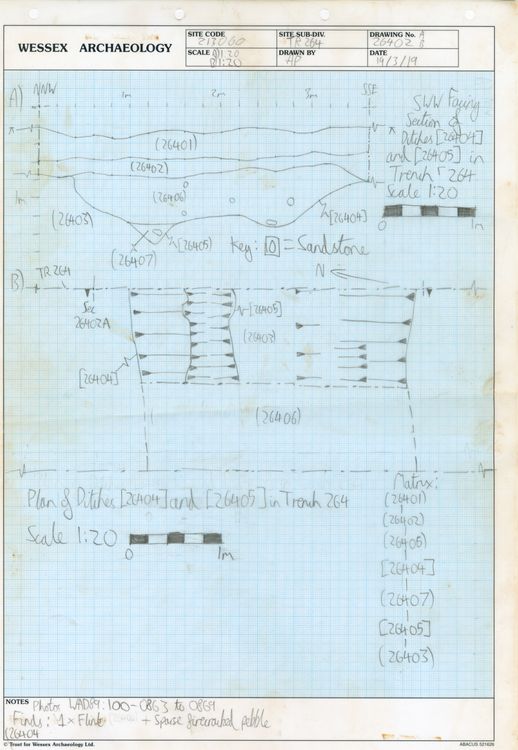 WESSEX ARCHAEOLOGY
SITE CODE
213060
SITE SUB-DIV.
TR264
DRAWING No. A
26402 B
SCALE A)1:20
B)1:20
DRAWN BY
AP
DATE
19/3/19
A)
NNW
1m
2m
3m
SSE
SWW Facing
Section of
Ditches [26404]
and [26405] in
Trench 264
Scale 1:20
0
1m
(26401)
(26402)
(26406)
1m
(26403)
[26404]
[26405]
(26407)
Key: = Sandstone
B)
TR264
N
Sec
26402A
[26405]
(26403)
[26404]
(26406)
Plan of Ditches [26404] and [26405] in Trench 264
Scale 1:20
0
1m
Matrix:
(26401)
(26402)
(26406)
[26404]
(26407)
[26405]
(26403)
NOTES Photos WAD69:100-0863 to 0869
Finds: 1 x Flint + Sparse fire cracked pebble
(26404
© Trust for Wessex Archaeology Ltd.
ABACUS 521626